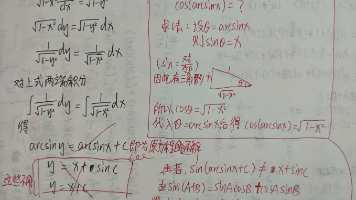 √1-x² dy = √1-y² dx
1/√1-y² dy = 1/√1-x² dx
对上式两端积分
∫ 1/√1-y² dy = ∫ 1/√1-x² dx
得
arcsin y = arcsin x + C 即为原方程的解
y = x + sin C
y = x + C
这步不对
cos(arcsin x) = ?
方法: 设θ = arcsin x
则 sin θ = x
所以 cos θ = √1-x²
代入 θ = arcsin x 得 cos(arcsin x) = √1-x²
sin(arcsin x + C) ≠ x + sin C
由 sin(A+B) = sin A cos B + cos A sin B